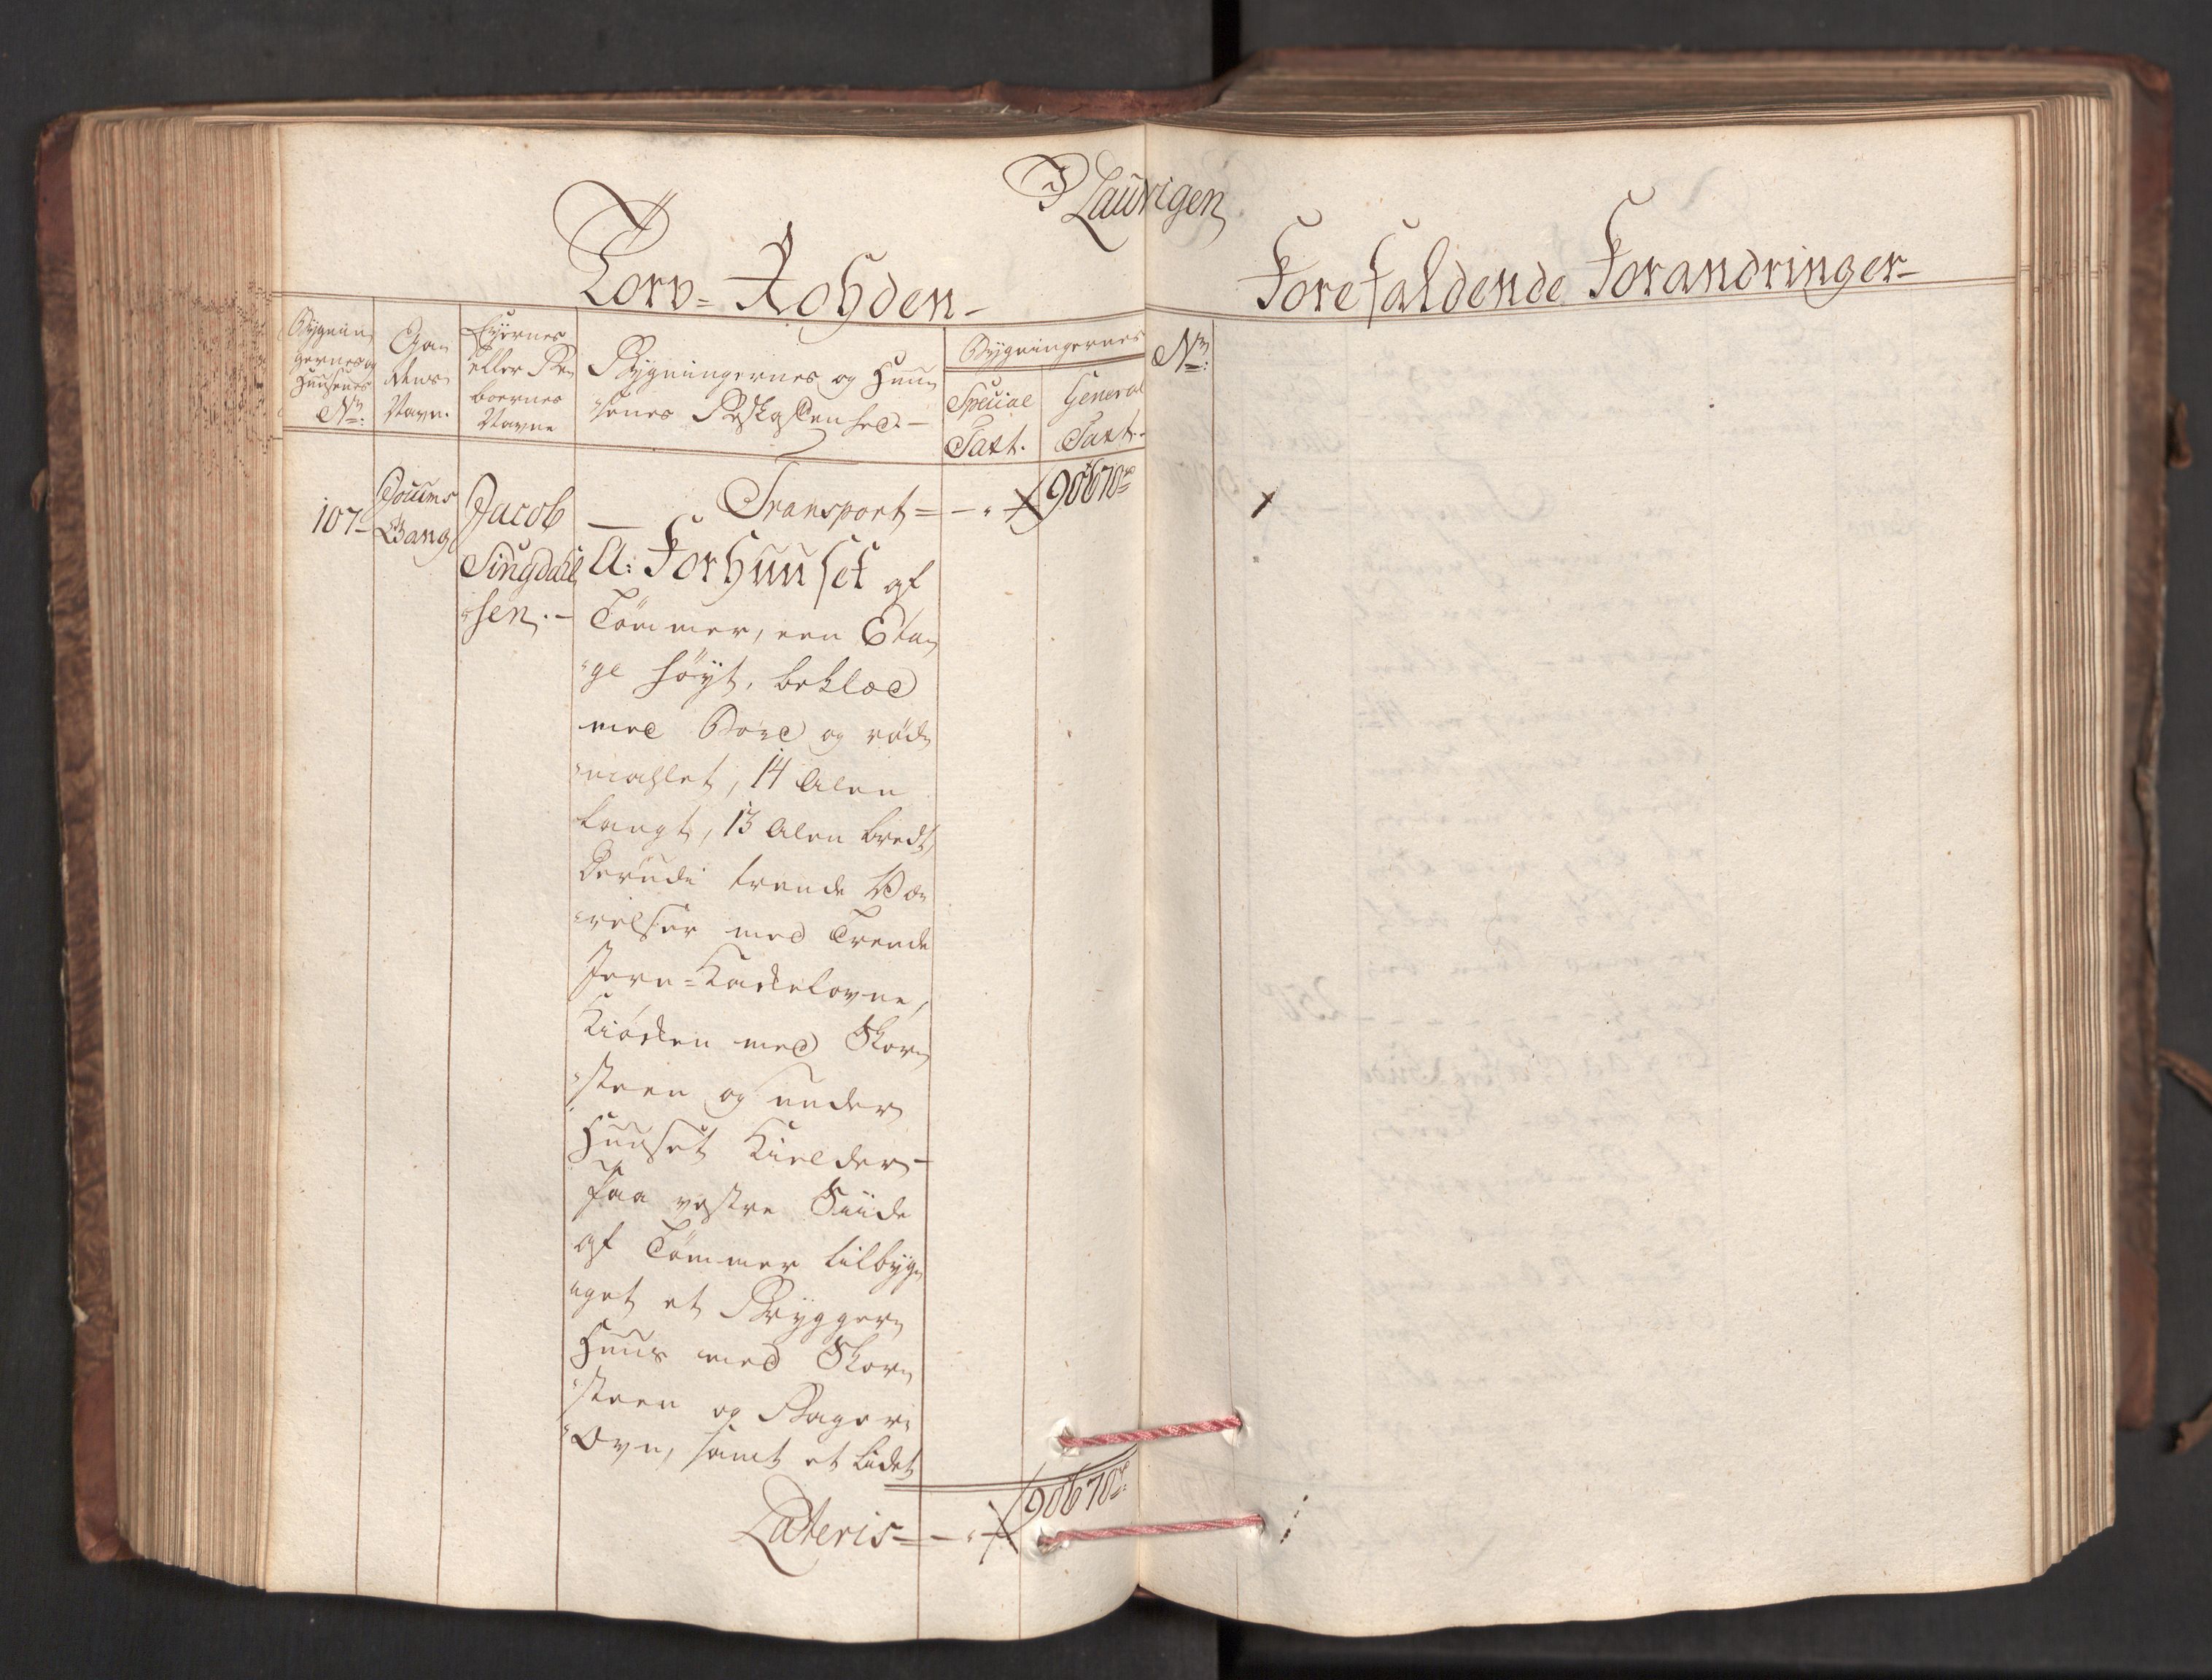 I Laurvigen
Torv-Rohden
Forefaldende Forandringer
Bygnin
gernes og
Huusenes
No:
Ga
dens
Navn.
Eyernes
eller Be
boernes
Navne
Bygningernes og Huu
senes Beskaffenhed.
Bygningernes
Special
Taxt.
General
Taxt.
No:
107
Gang
Jacob
Singdahl
sen.
Transport = 90670
A: Forhuuset af
Tömmer, een Eta
ge höyt, beklæd
med Bord og röd
mahlet, 14 Alen
langt, 13 Alen bredt,
Derudi trende Væ
relser med Trende
Jern-Kackelovne,
Kiöcken med Skor
steen og under
Huuset Kielder-
Paa vestre Siide
af Tömmer tilbyg
get et Brygger
Huus med Skor
steen og Bager
Ovn, samt et Lidet
Lateris = 90670